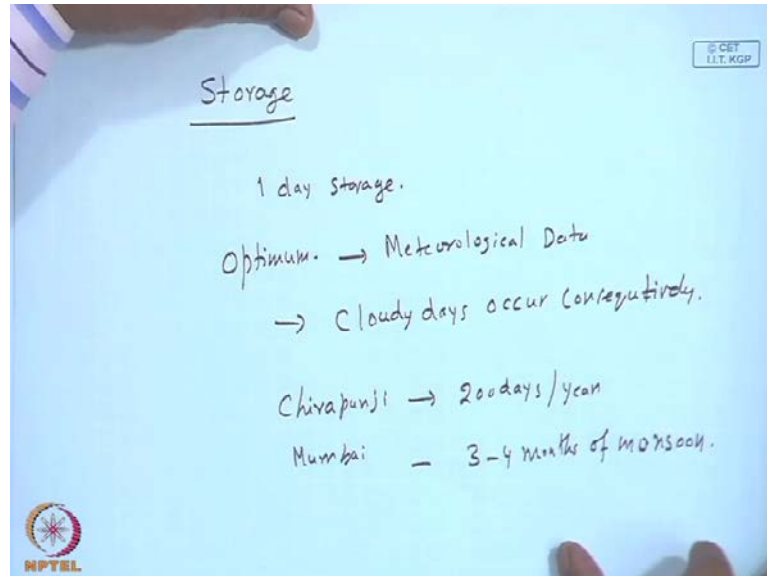 © CET
I.I.T. KGP
Storage
1 day storage.
Optimum. → Meteorological Data
→ Cloudy days occur consequtively.
Chirapunji → 200 days/year
Mumbai – 3-4 months of monsoon.
NPTEL